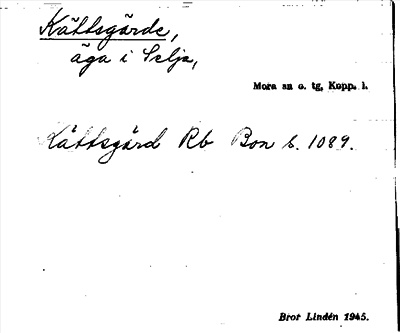 Kättsgärde,
äga i Selja,
Mora sn o. tg, Kopp. l.
Kättsgärd Rb Bon b. 1089.
Bror Lindén 1945.